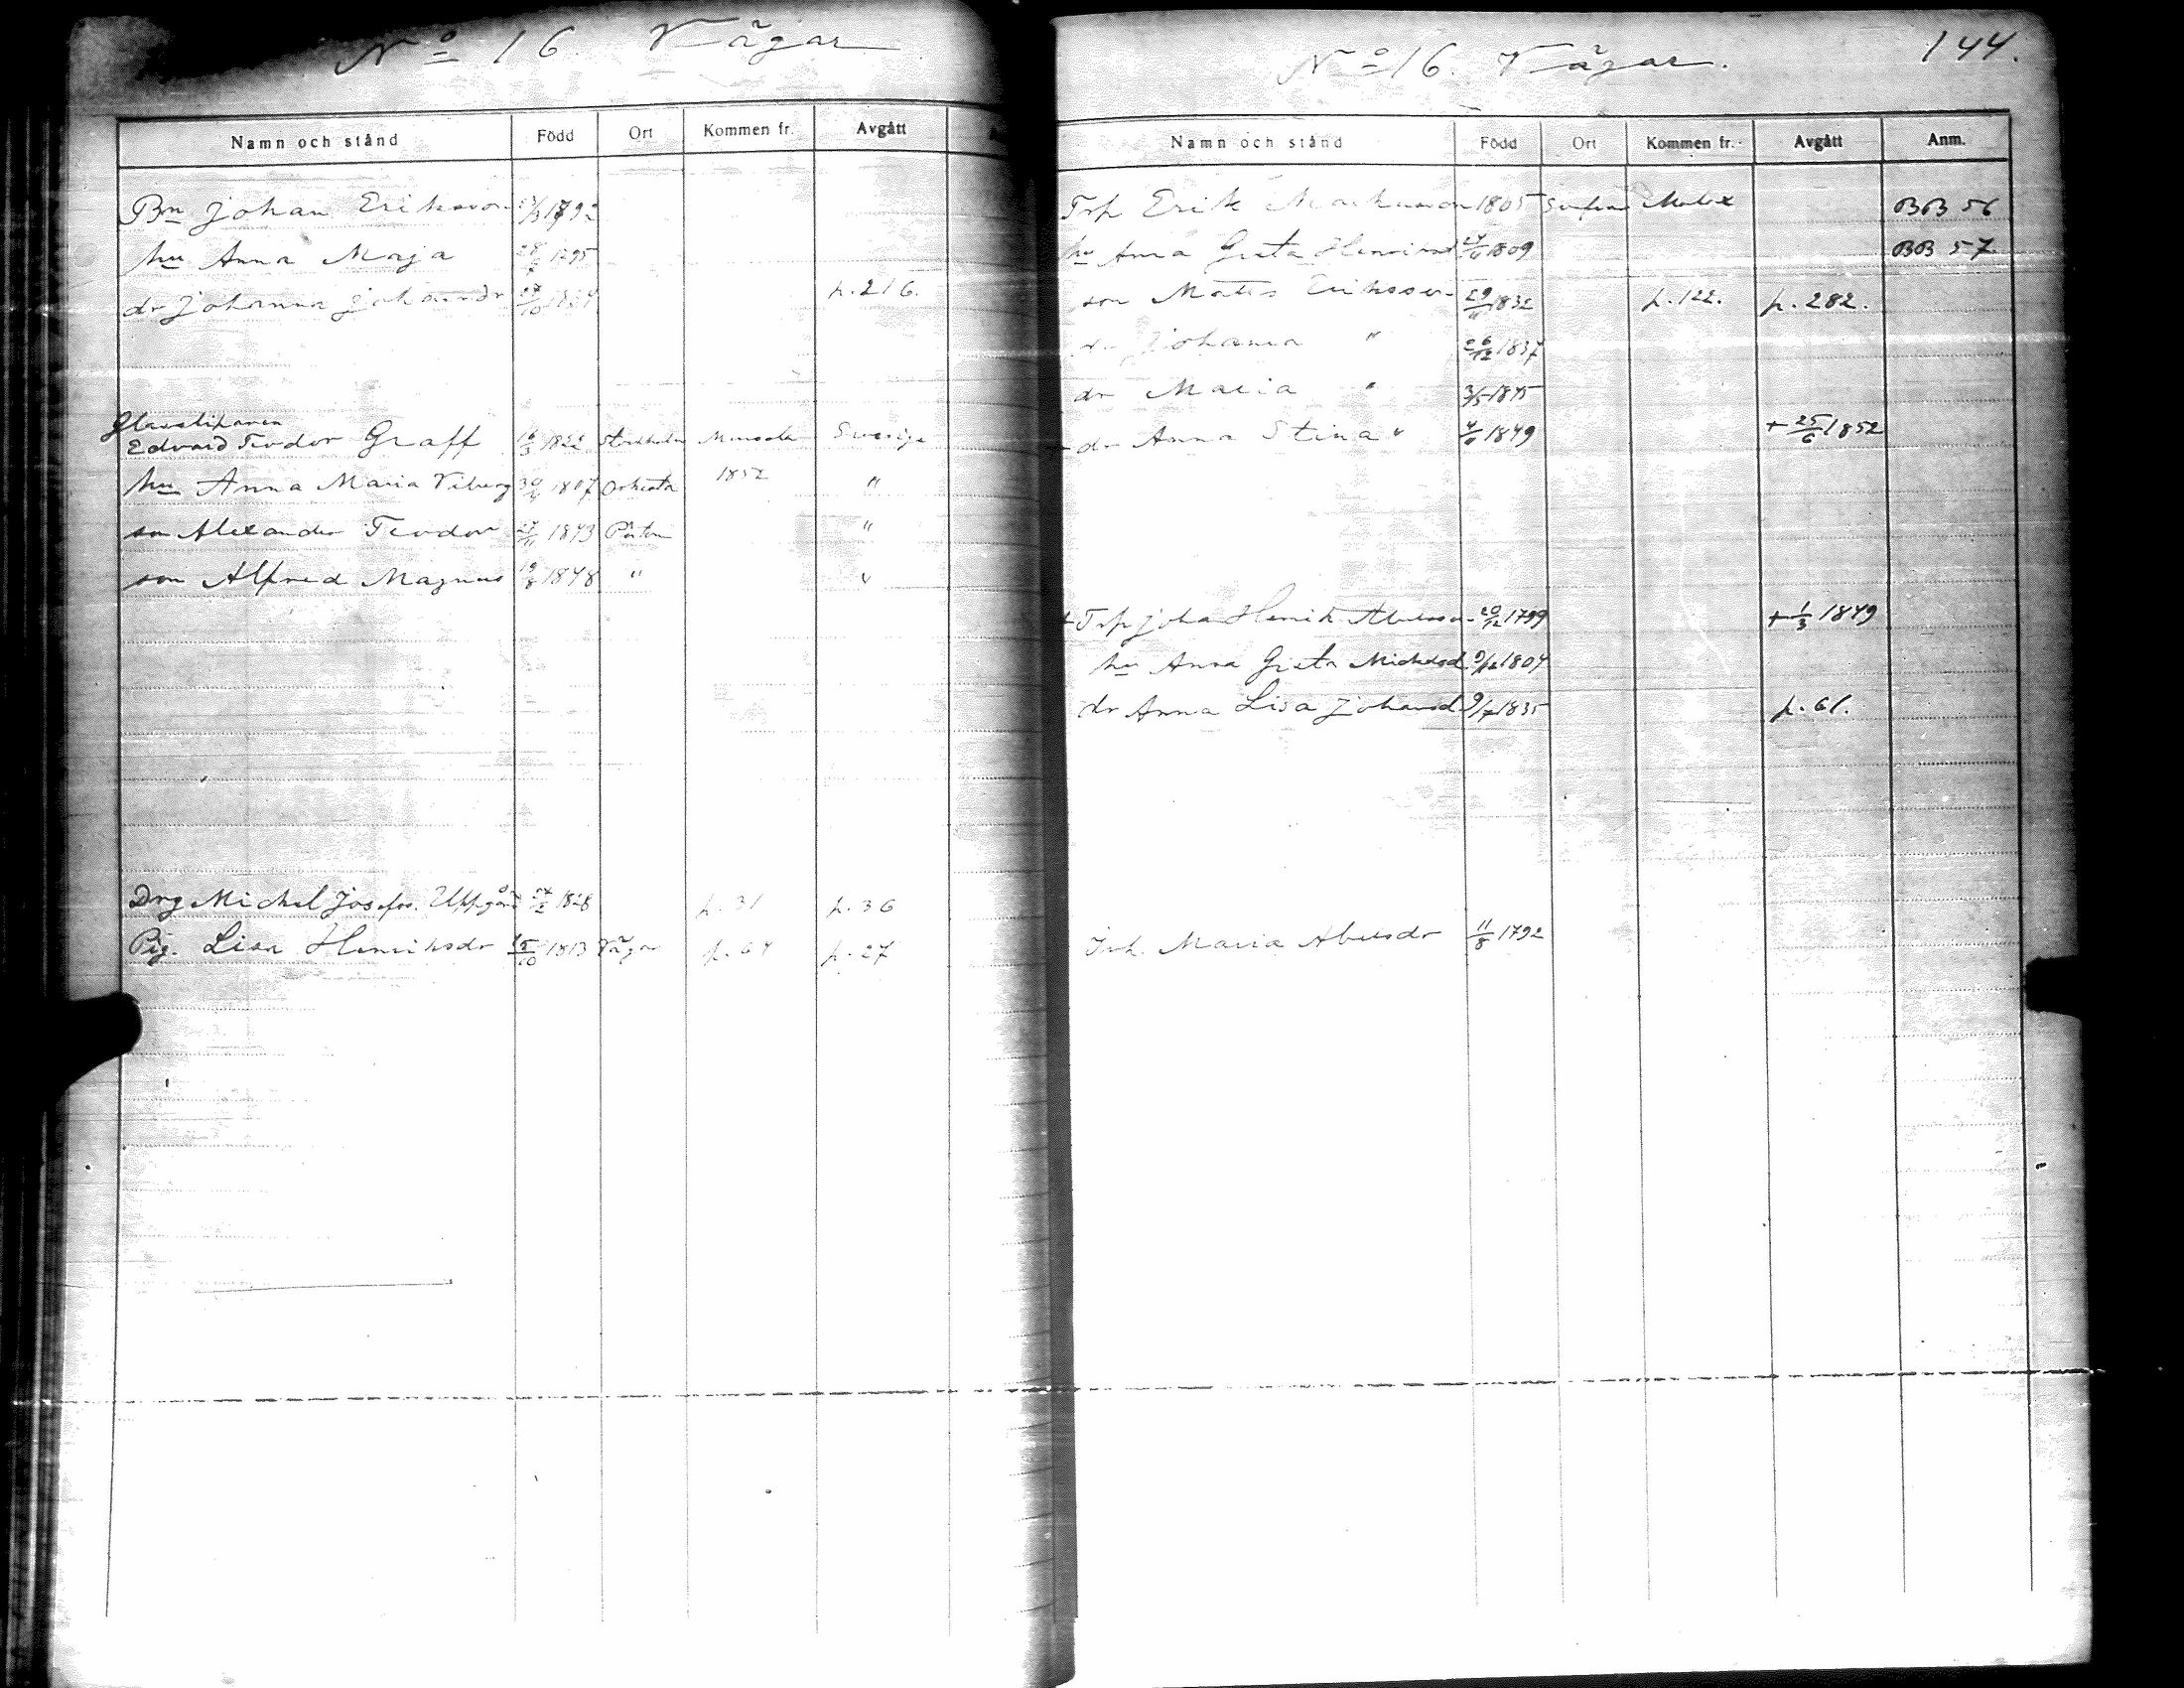 No 16 Vägar
Namn och stånd Född Ort Kommen fr. Avgått
Bn Johan Eriksson 1792
hu Anna Maja 1795
dr Johanna Johansdr p. 216.
Glassliparen
Edvard Teodor Graff 16/3 1822 Stockholm Sverige
hu Anna Maria Viberg 30/4 1807 Orkesta 1852 "
son Alexander Teodor 27/11 1843 "
son Alfred Magnus 19/8 1848 " "
Drg Michel Josefss. Uppgård 1828 p. 31 p. 36
Pig. Lisa Henriksdr 15/10 1813 Vägar p. 64 p. 27
No 16. Vägar. 144.
Namn och stånd Född Ort Kommen fr. Avgått Anm.
Trp Erik Markusson 1805 Malax BB 56
hu Anna Greta Henriksd 24/6 1809 BB 57.
son Matts Eriksson 29/11 1832 p. 122. p. 282.
dr Johanna " 26/12 1837
dr Maria " 3/5 1845
dr Anna Stina " 4/6 1849 + 25/6 1852
+ Trp Johan Henrik Abelsson 20/12 1799 + 1/3 1849
hu Anna Greta Michelsd 9/12 1804
dr Anna Lisa Johansd 9/7 1835 p. 61.
Inh. Maria Abelsdr 11/8 1792